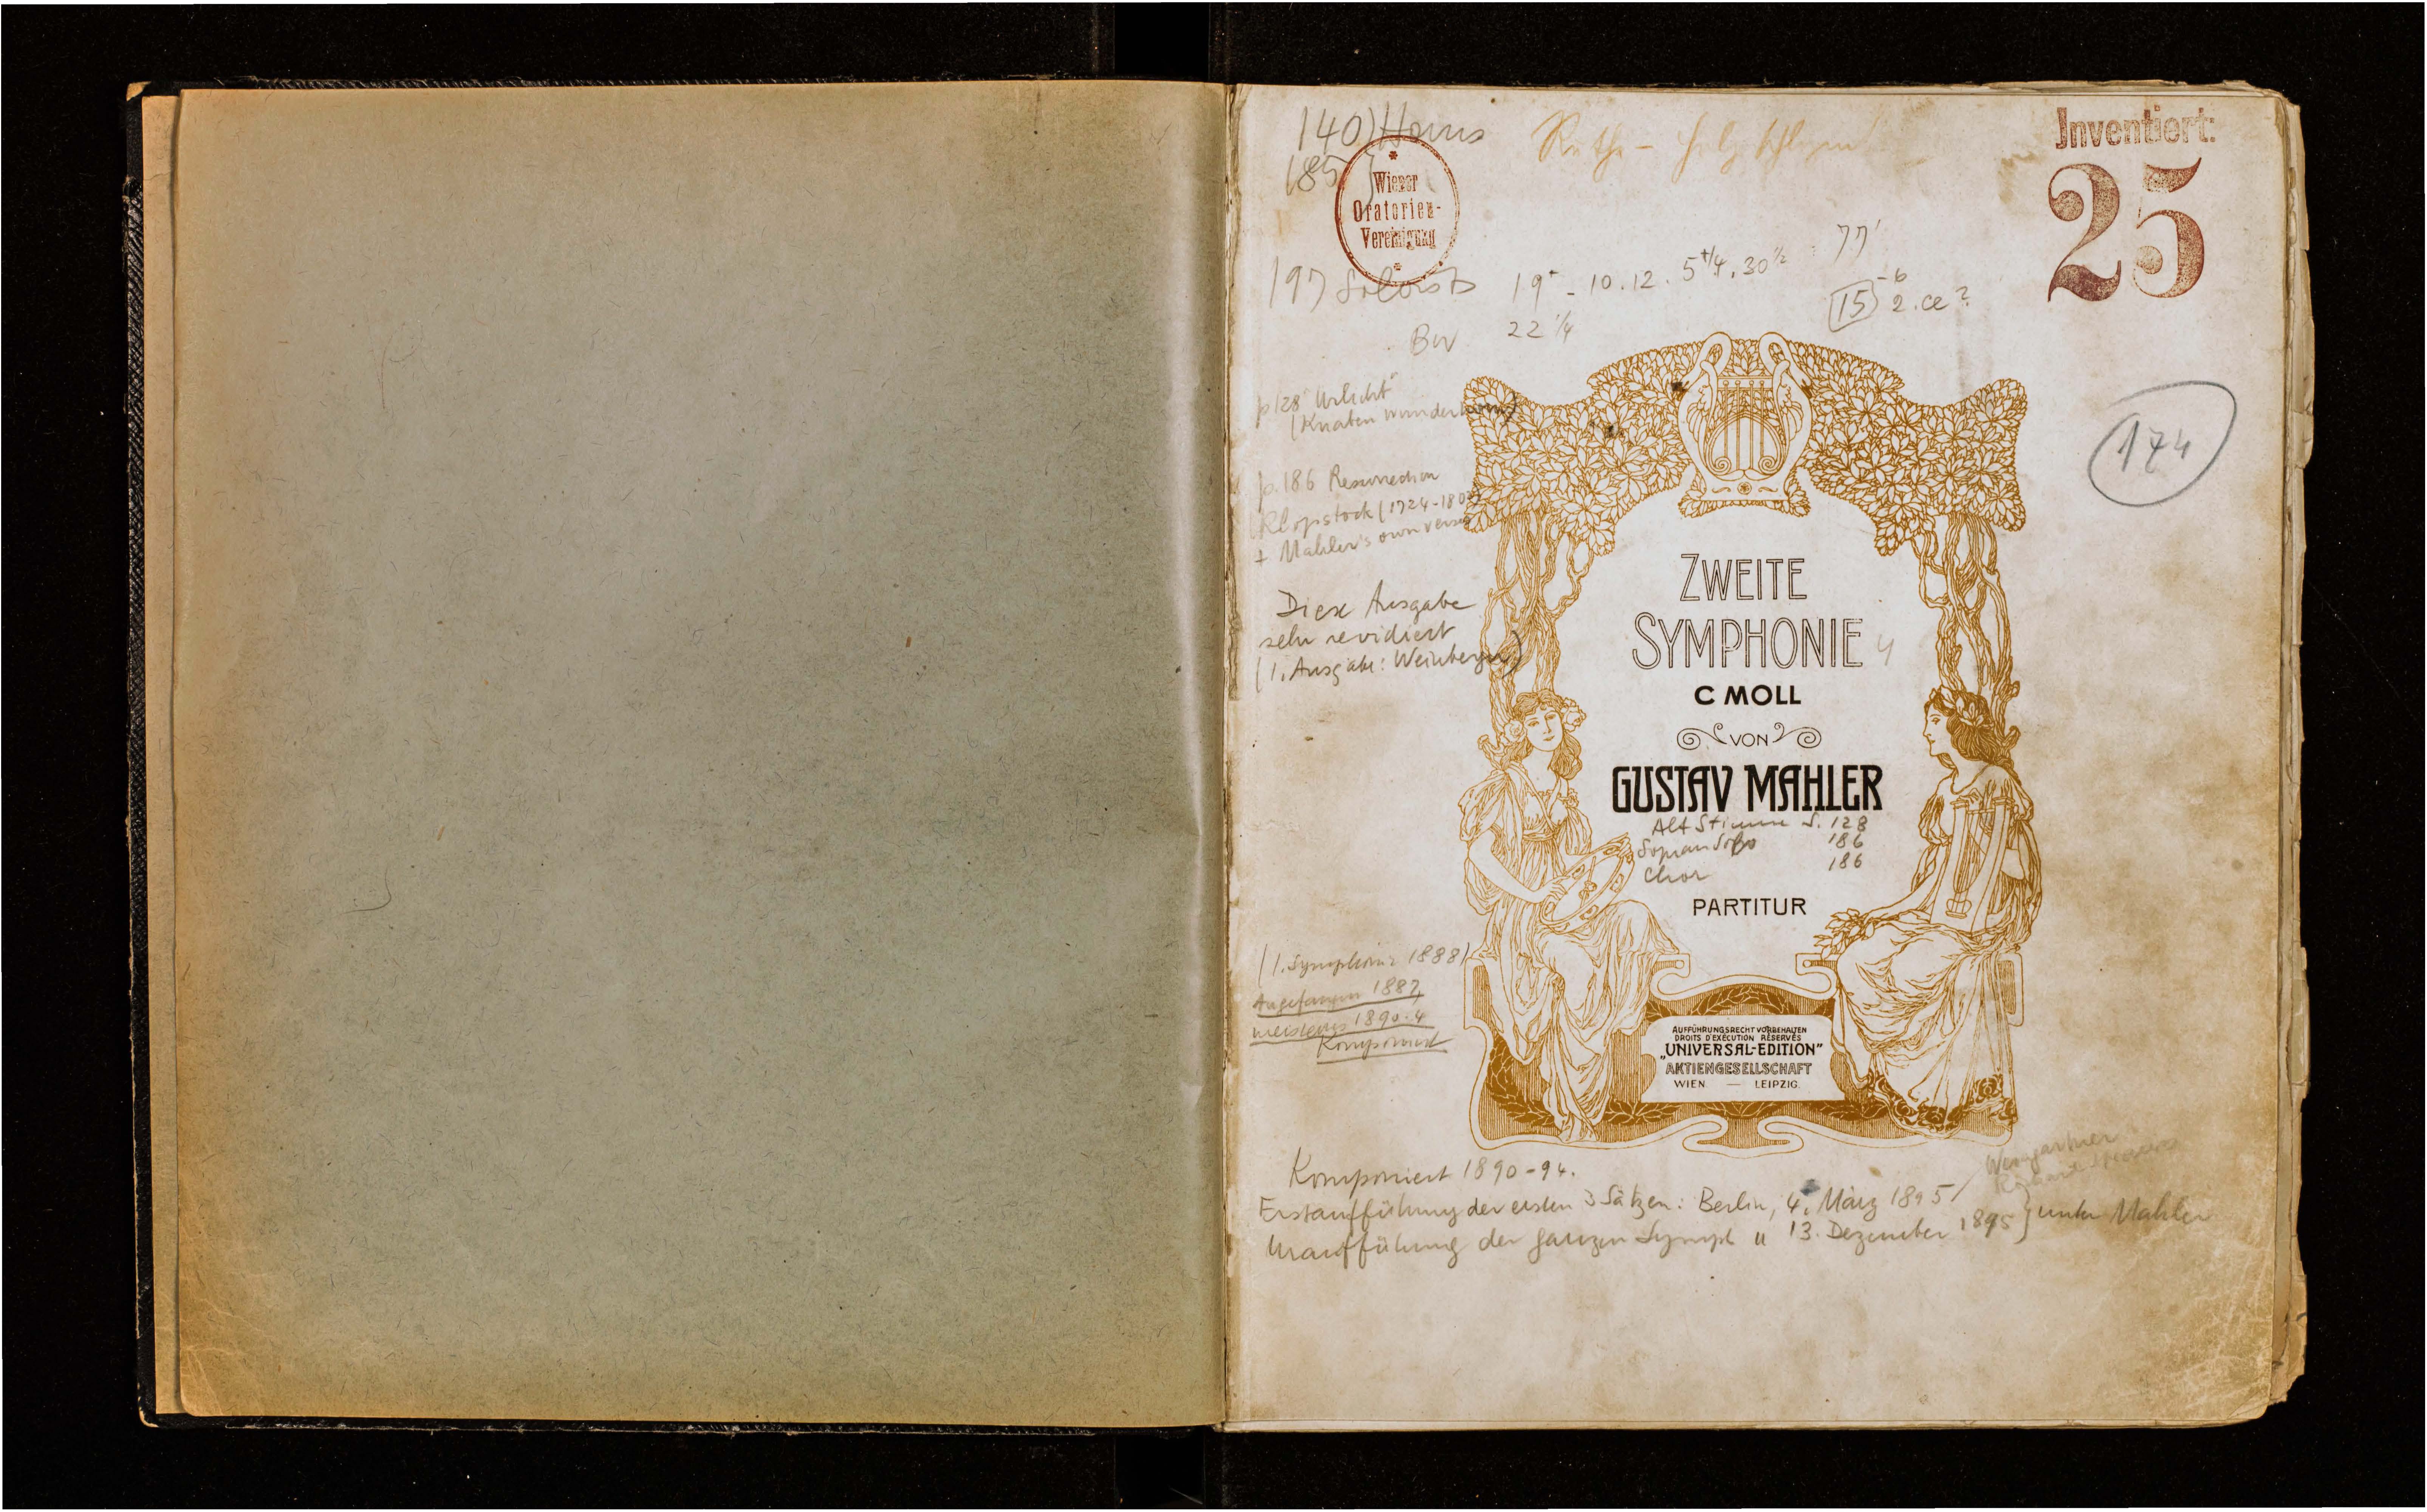 140) Horns
185
Wiener
Oratorien-
Vereinigung
Inventiert:
25
197 Soloists
19+ - 10. 12. 5+/4. 30½ : 77'
22¼
15 -6
2. ce?
174
p128 "Urlicht"
(Knaben Wunderhorn)
p. 186 Resurrection
Klopstock (1724-1803)
+ Mahler's own verses
Diese Ausgabe
sehr revidiert
(1. Ausgabe: Weinberger)
ZWEITE
SYMPHONIE 4
C MOLL
VON
GUSTAV MAHLER
Alt Stimme S. 128
Sopran Solo 186
Chor 186
PARTITUR
(1. Symphonie 1888)
Angefangen 1887
meistens 1890-4
Komponiert
AUFFÜHRUNGSRECHT VORBEHALTEN
DROITS D'EXÉCUTION RÉSERVÉS
„UNIVERSAL-EDITION"
AKTIENGESELLSCHAFT
WIEN — LEIPZIG.
Komponiert 1890-94.
Weingartner
Richard Strauss
Erstaufführung der ersten 3 Sätzen: Berlin, 4. März 1895 /
Uraufführung der ganzen Symph " 13. Dezember 1895 } unter Mahler